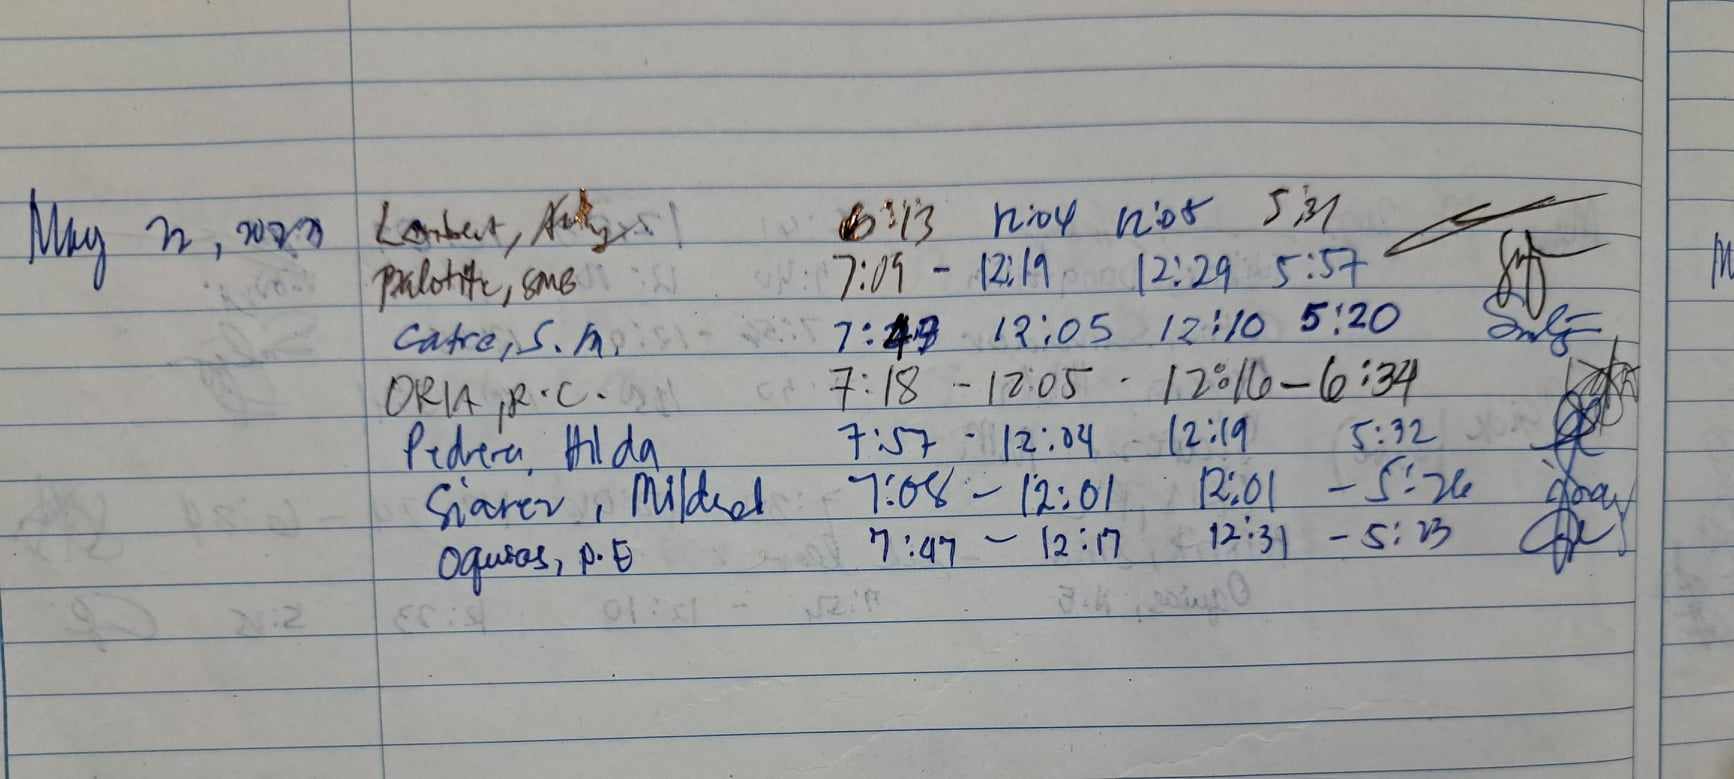 May 22, 2023 Lambert, 6:13 12:04 12:05 5:31
SMB 7:09 - 12:19 12:29 5:57
Catre, S.M. 7:43 12:05 12:10 5:20
ORIA, R.C. 7:18 - 12:05 - 12:16 - 6:34
Pedrera, Hilda 7:57 - 12:04 12:19 5:32
Siarez, Mildred 7:08 - 12:01 12:01 - 5:26
Oquias, N.E 7:47 - 12:17 12:31 - 5:23